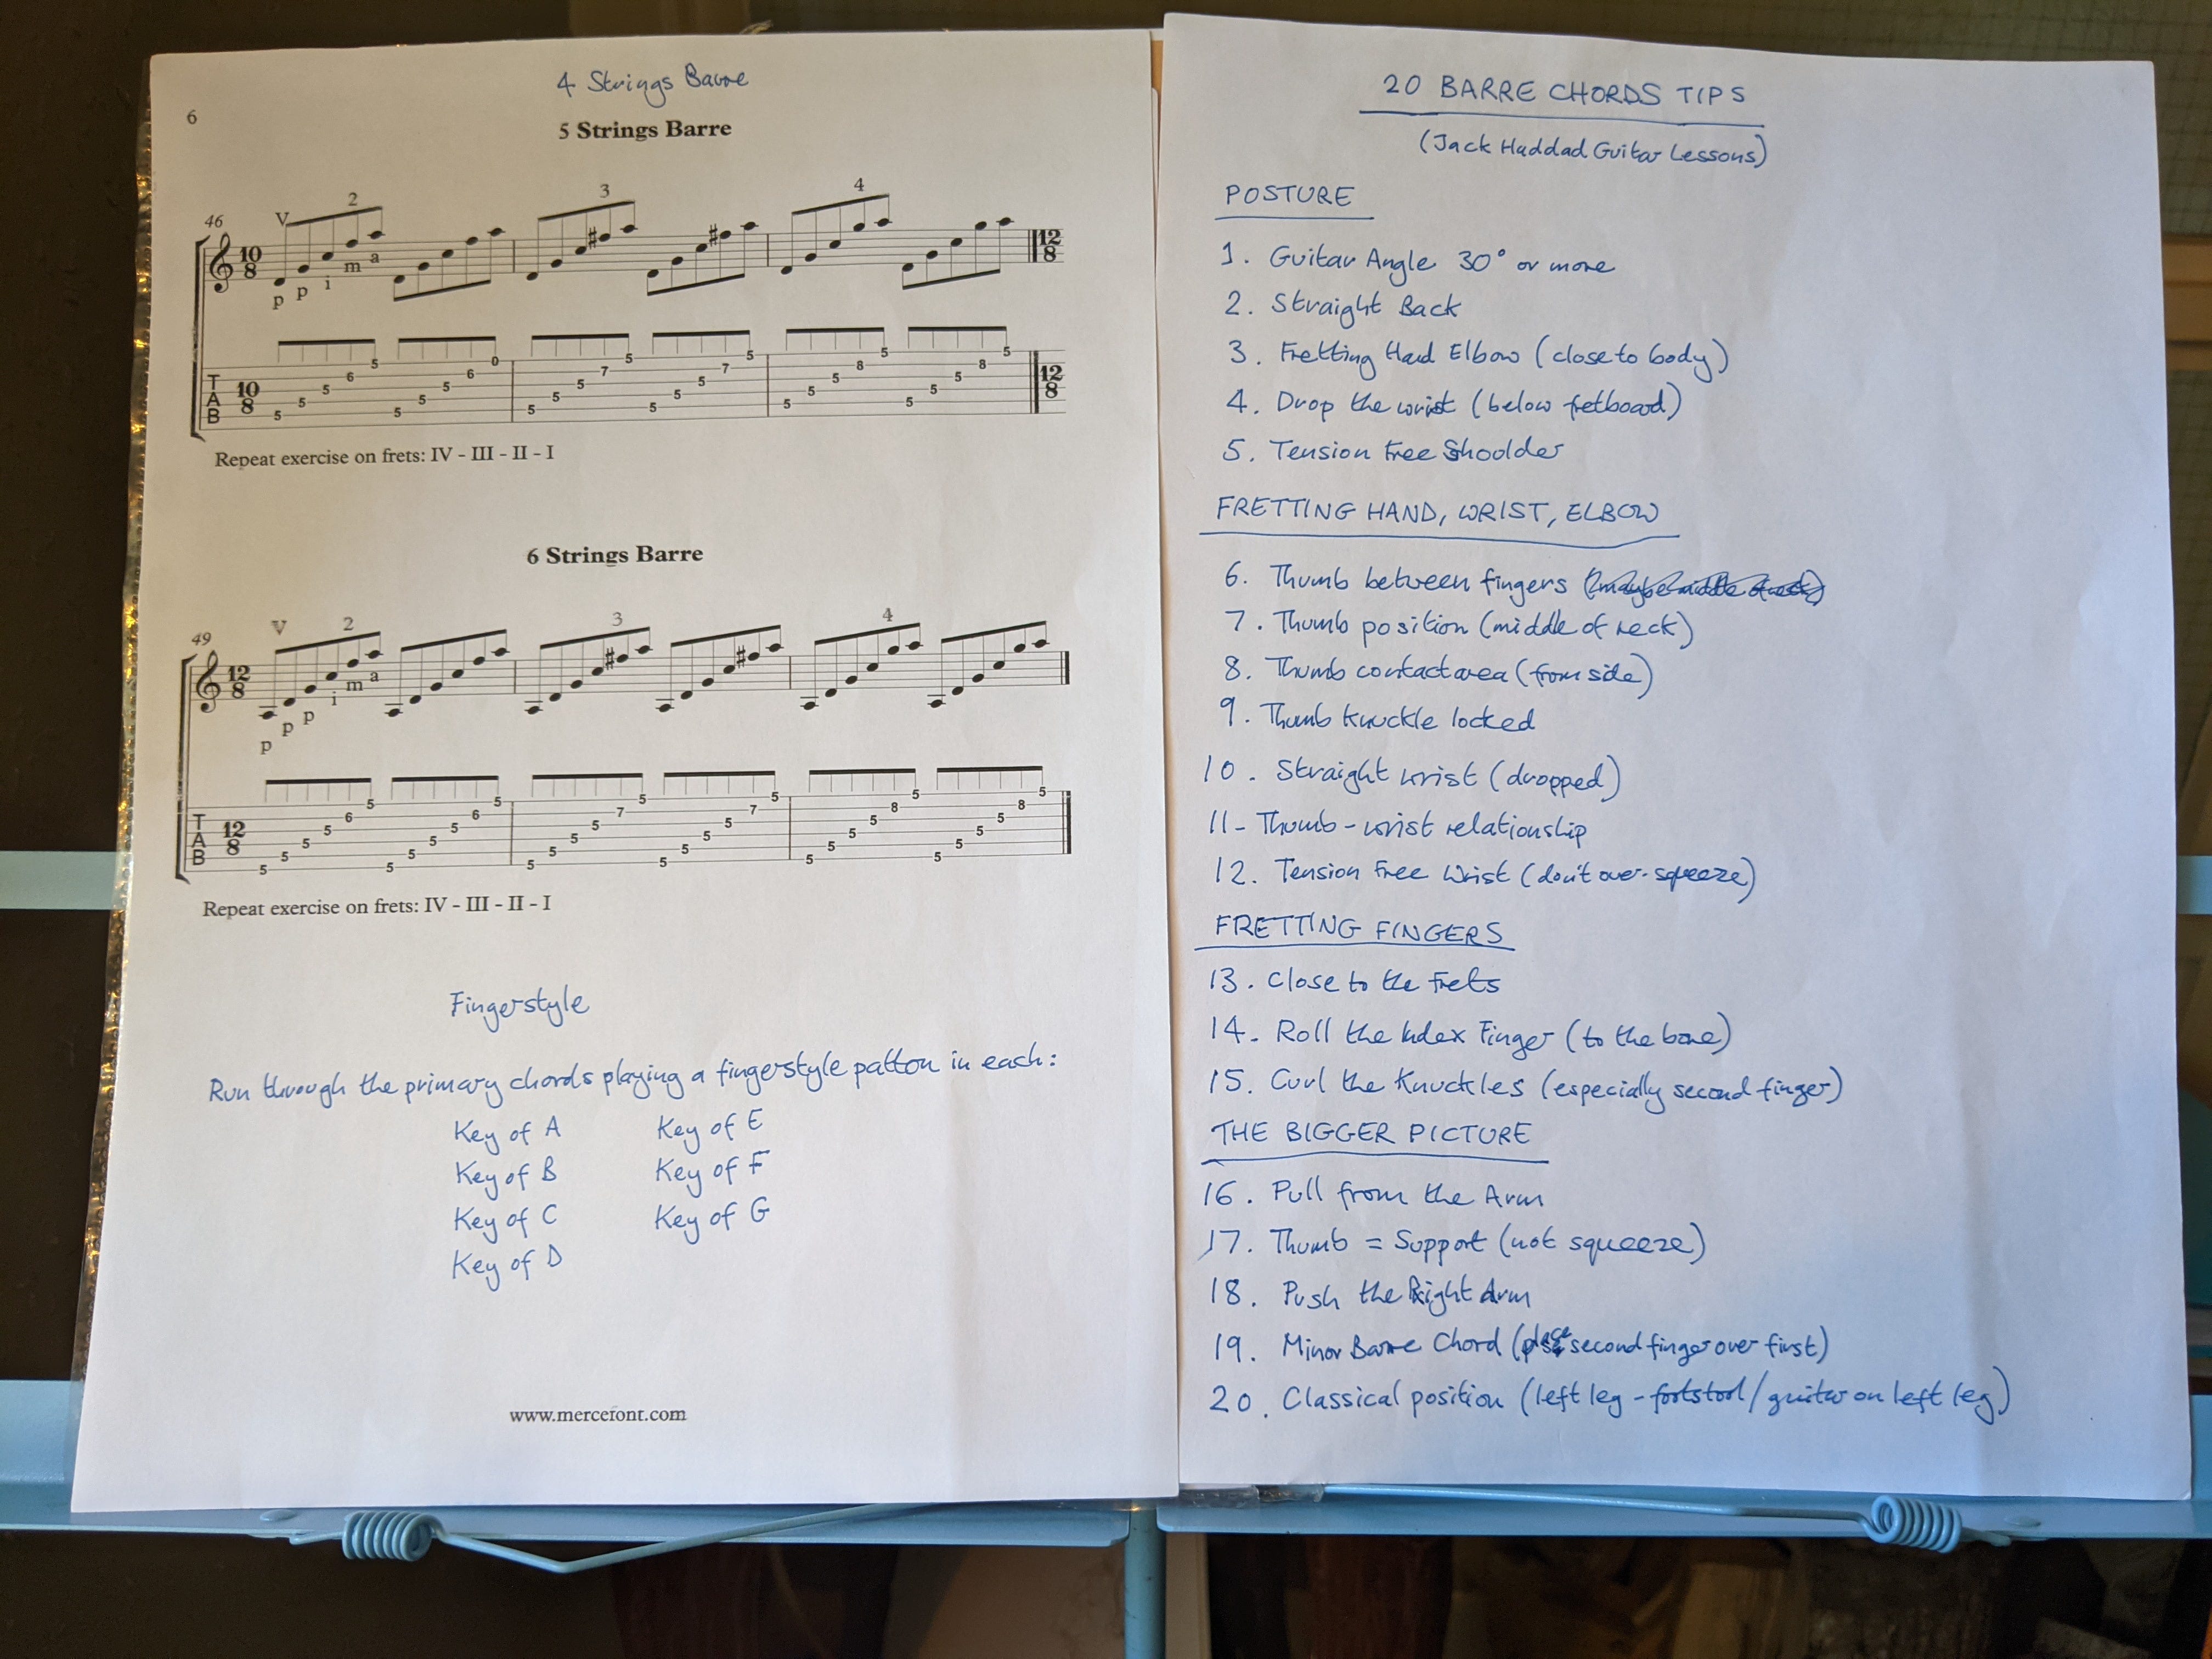 4 Strings Barre
6
5 Strings Barre
46
V 2 3 4
10 8 12 8
p p i m a
T A B
10 8 12 8
5 5 5 6 5 5 5 5 6 0 5 5 5 7 5 5 5 5 7 5 5 5 5 8 5 5 5 5 8 5
Repeat exercise on frets: IV - III - II - I
6 Strings Barre
49
V 2 3 4
12 8
p p p i m a
T A B
12 8
5 5 5 5 6 5 5 5 5 5 6 5 5 5 5 5 7 5 5 5 5 5 7 5 5 5 5 5 8 5 5 5 5 5 8 5
Repeat exercise on frets: IV - III - II - I
Fingerstyle
Run through the primary chords playing a fingerstyle patton in each:
Key of A Key of E
Key of B Key of F
Key of C Key of G
Key of D
www.mercefont.com
20 BARRE CHORDS TIPS
(Jack Haddad Guitar Lessons)
POSTURE
1. Guitar Angle 30° or more
2. Straight Back
3. Fretting Hand Elbow (close to body)
4. Drop the wrist (below fretboard)
5. Tension Free Shoolder
FRETTING HAND, WRIST, ELBOW
6. Thumb between fingers
7. Thumb position (middle of neck)
8. Thumb contact area (from side)
9. Thumb knuckle locked
10. Straight wrist (dropped)
11- Thumb-wrist relationship
12. Tension Free Wrist (don't over-squeeze)
FRETTING FINGERS
13. Close to the Frets
14. Roll the Index Finger (to the bone)
15. Curl the Knuckles (especially second finger)
THE BIGGER PICTURE
16. Pull from the Arm
17. Thumb = Support (not squeeze)
18. Push the Right Arm
19. Minor Barre Chord (place second finger over first)
20. Classical position (left leg - footstool / guitar on left leg)